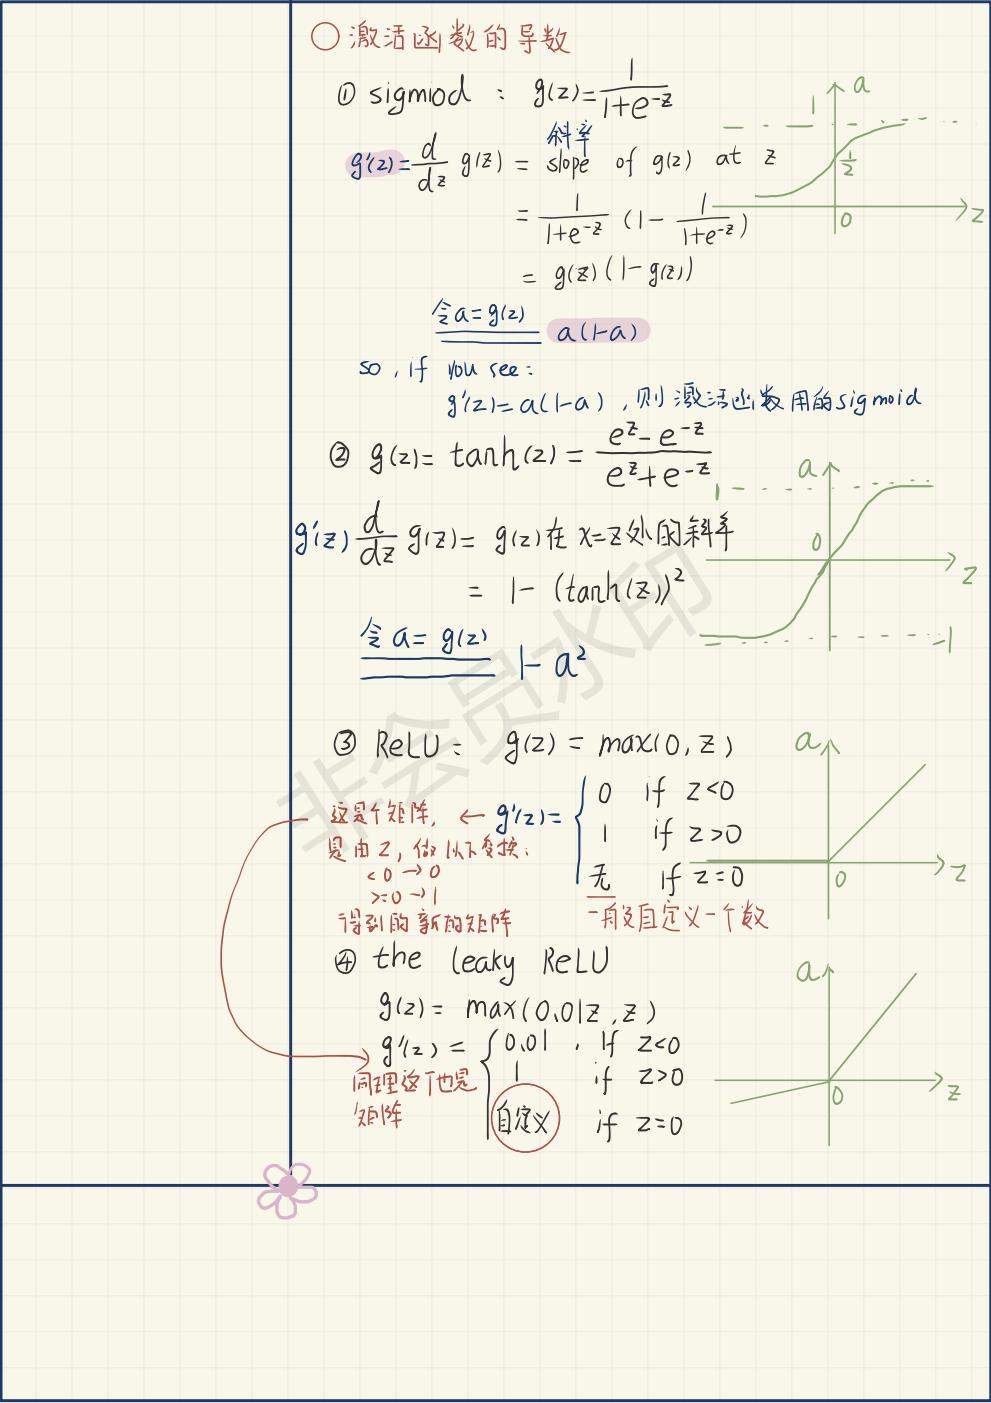 激活函数的导数
① sigmiod : g(z)=1/(1+e^-z)
斜率
g'(z)=d/dz g(z) = slope of g(z) at z
= 1/(1+e^-z) (1- 1/(1+e^-z))
= g(z)(1-g(z))
令a=g(z) a(1-a)
so, if you see:
g'(z)=a(1-a),则激活函数用的sigmoid
a
1
1/2
0
z
② g(z)= tanh(z) = (e^z-e^-z)/(e^z+e^-z)
g'(z) d/dz g(z)= g(z)在 x=z处的斜率
= 1-(tanh(z))²
令 a= g(z) 1-a²
a
1
0
z
-1
③ ReLU: g(z) = max(0,z)
g'(z)= { 0 if z<0
1 if z>0
无 if z=0
一般自定义一个数
这是个矩阵, ←
是由 z,做以下变换:
<0 →0
>=0 →1
得到的新的矩阵
a
0
z
④ the leaky ReLU
g(z)= max(0.01z,z)
g'(z) = { 0.01 , if z<0
1 if z>0
自定义 if z=0
同理这个也是
矩阵
a
0
z
非会员水印